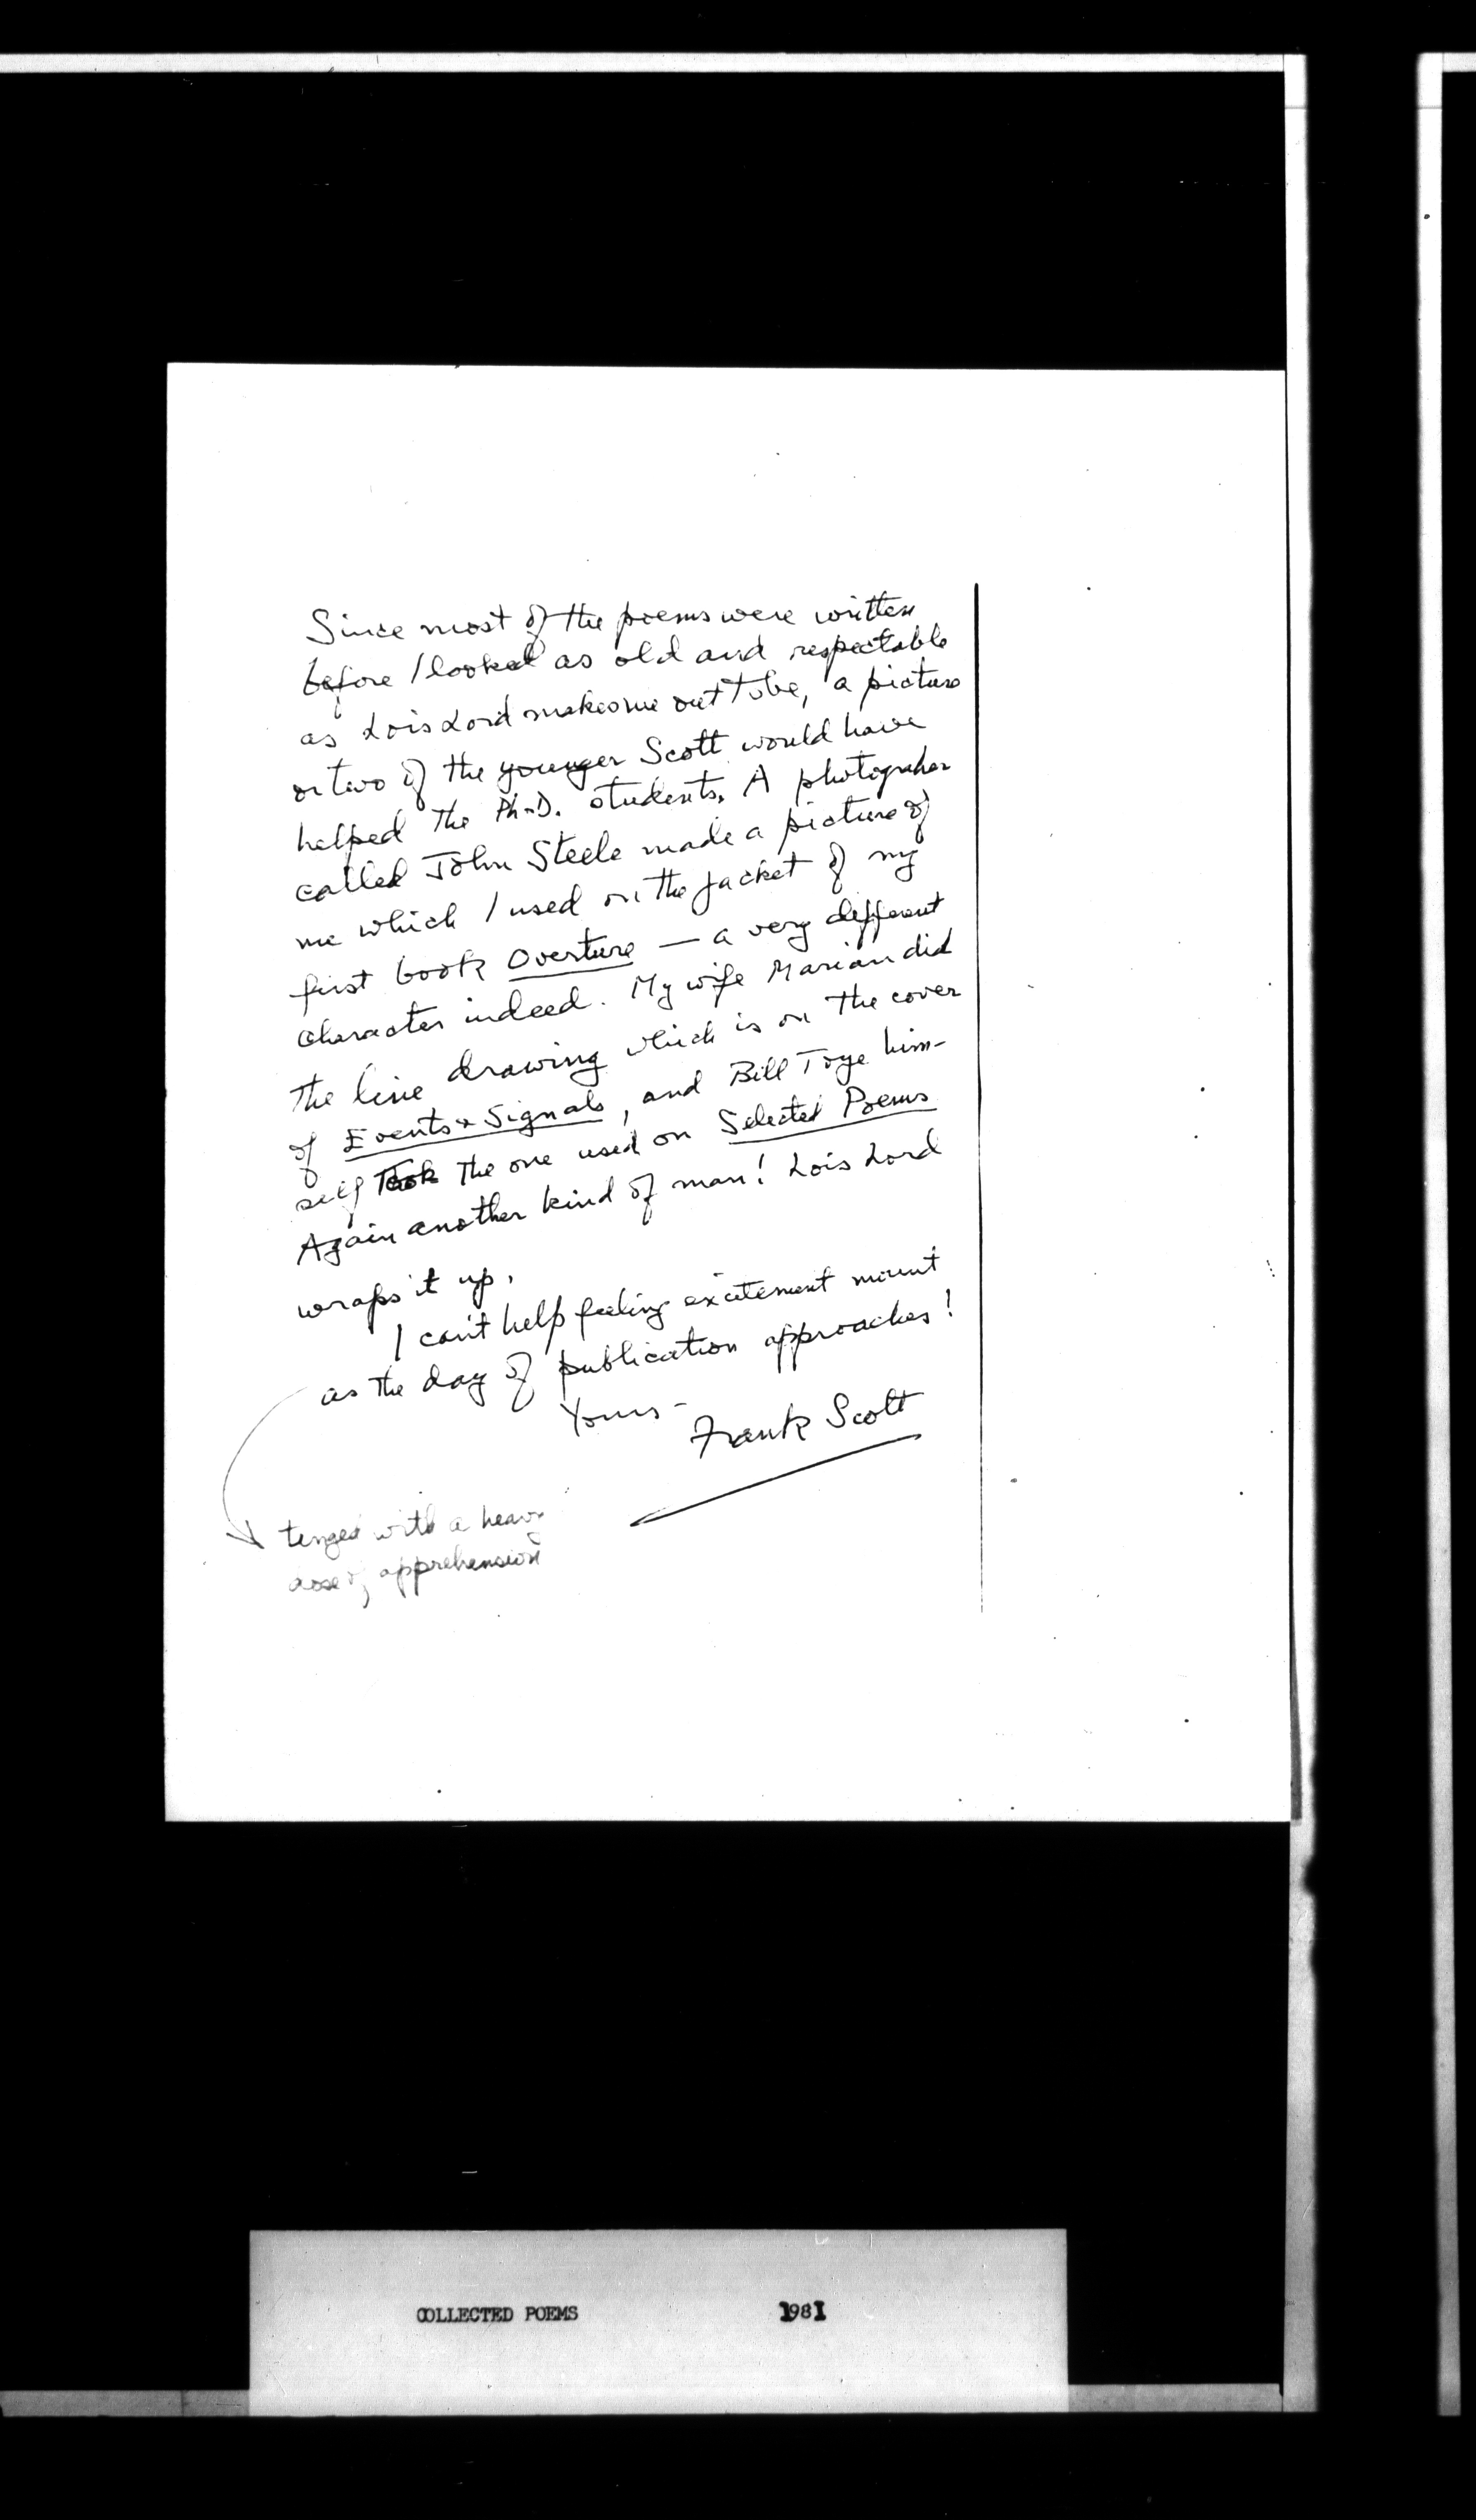 Since most of the poems were written
before I looked as old and respectable
as Lois Lord makes me out to be, a picture
or two of the younger Scott would have
helped the Ph.D. students. A photographer
called John Steele made a picture of
me which I used on the jacket of my
first book Overture — a very different
character indeed. My wife Marian did
the line drawing which is on the cover
of Events & Signals, and Bill Toye him-
self took the one used on Selected Poems
Again another kind of man! Lois Lord
wraps it up.
I can't help feeling excitement mount
as the day of publication approaches!
Yours -
Frank Scott
tinged with a heavy
dose of apprehension
COLLECTED POEMS 1981